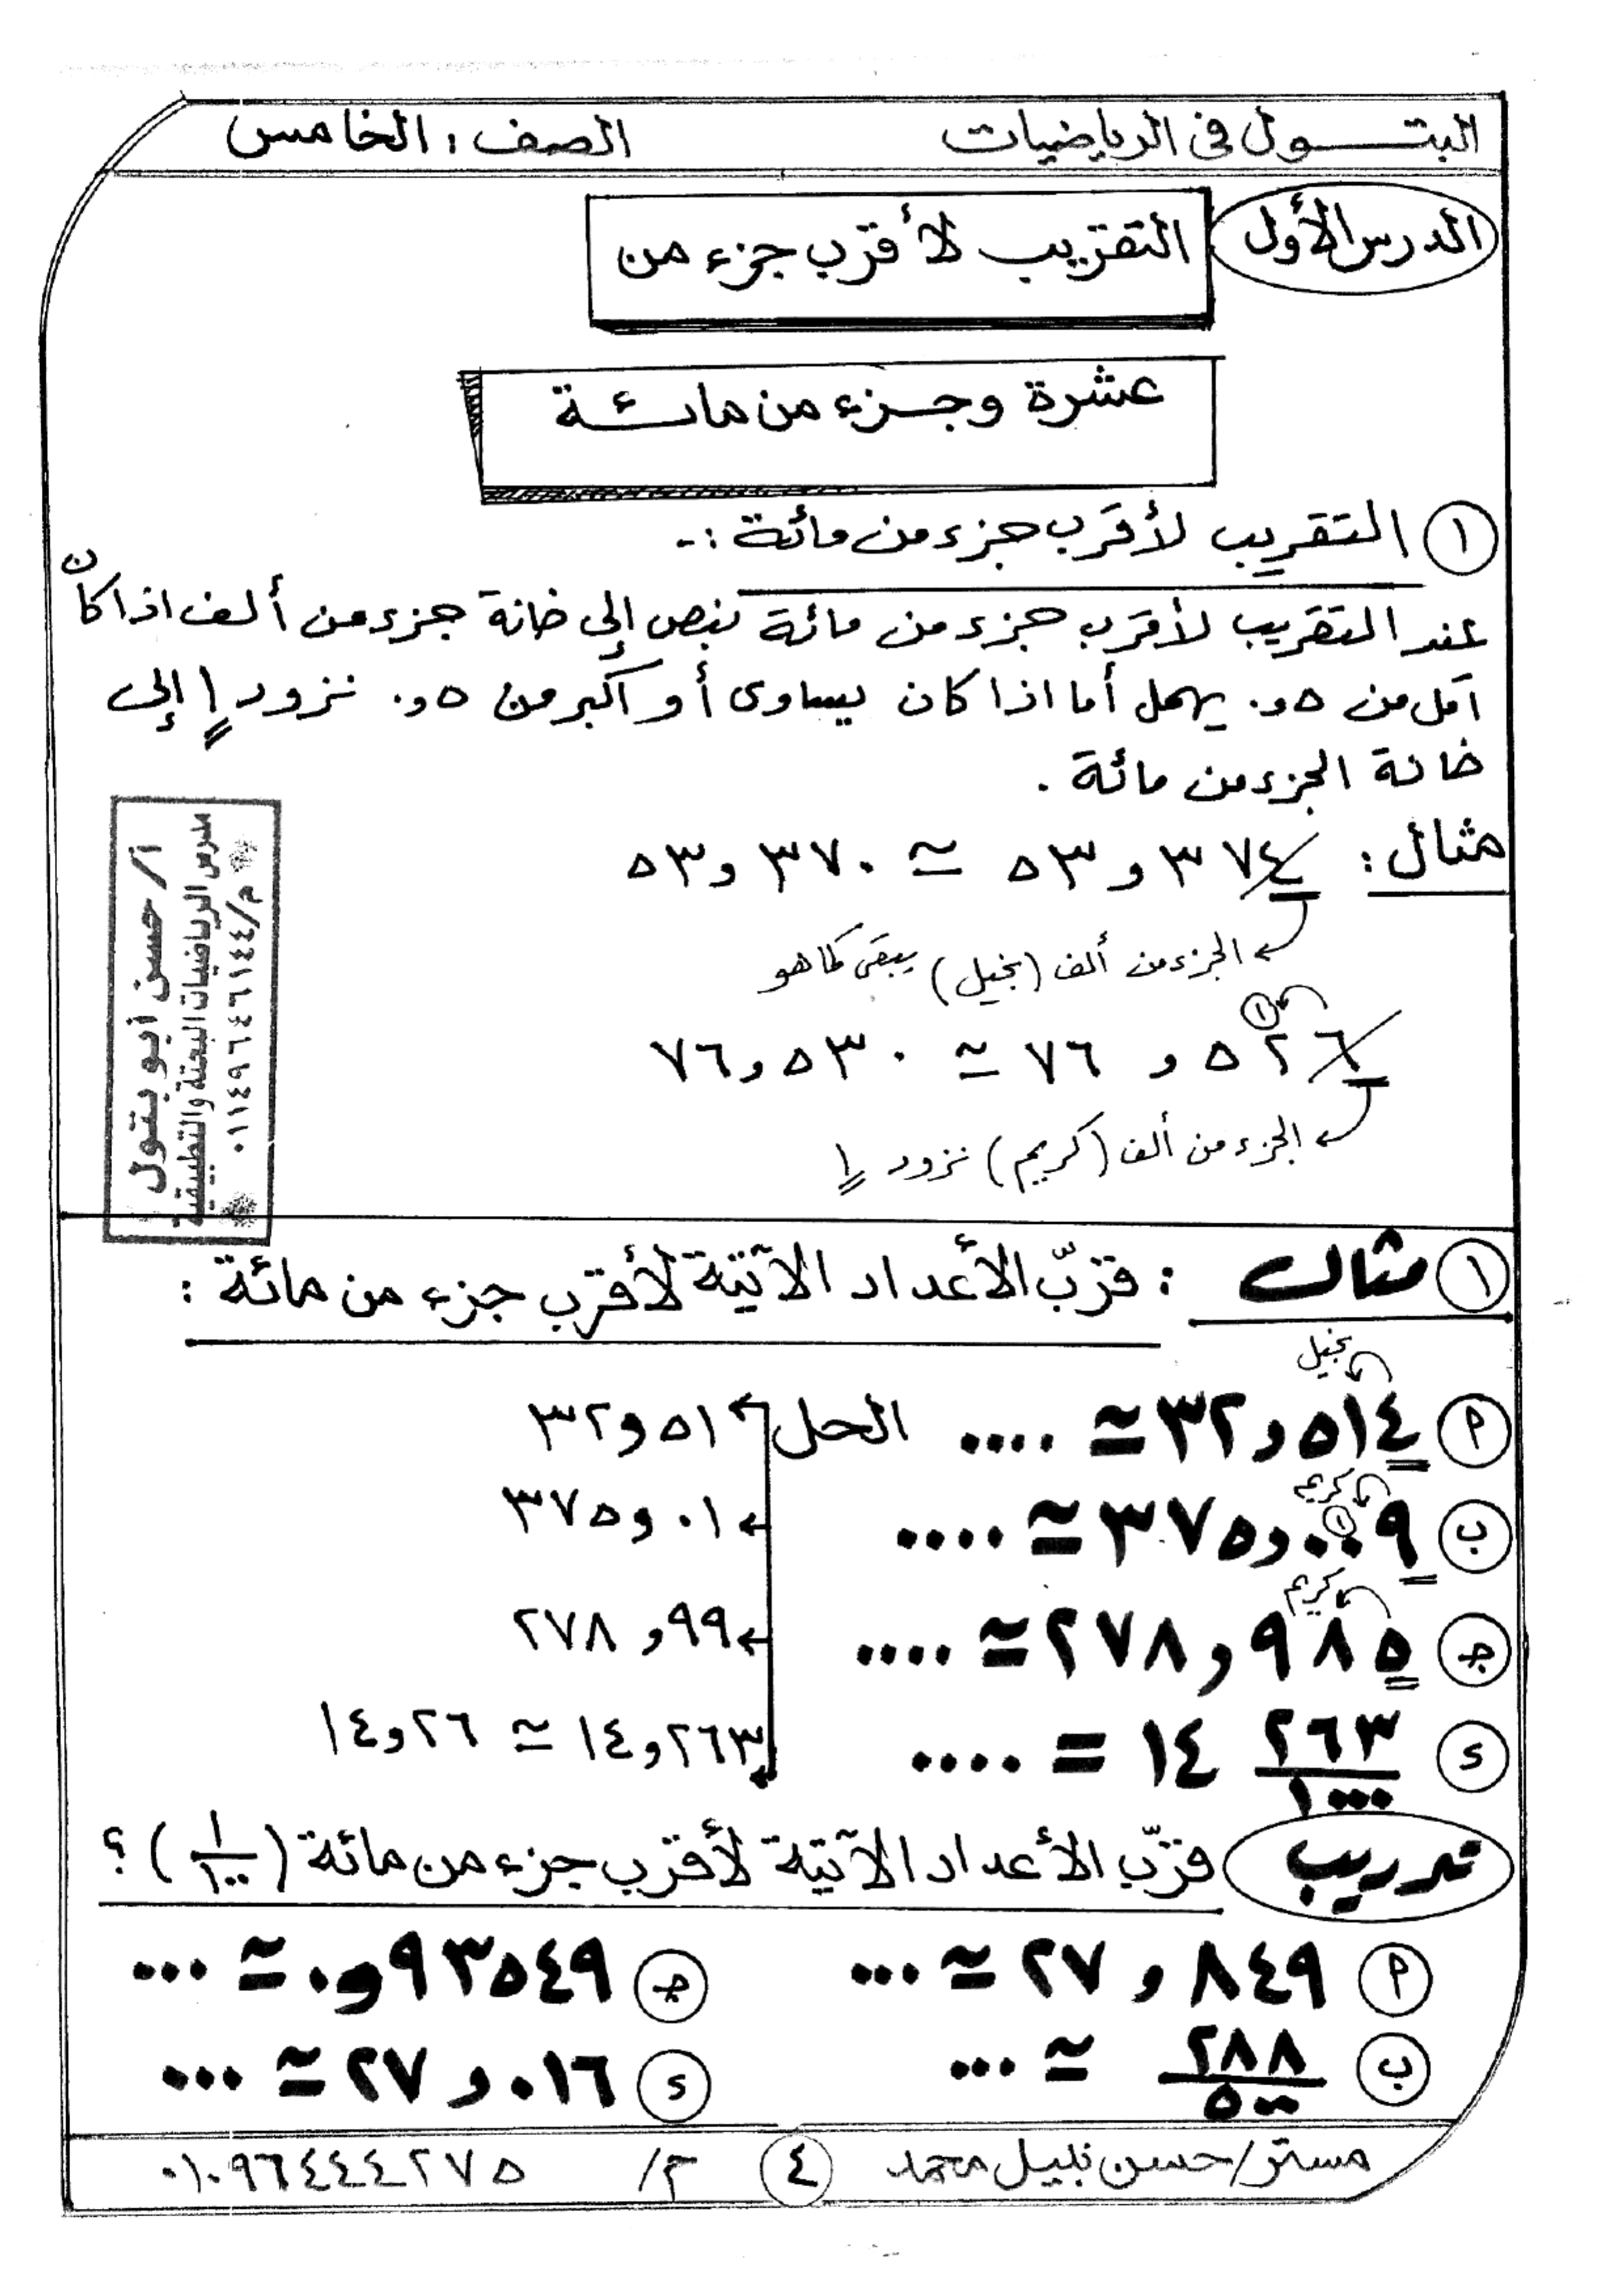 البتول فى الرياضيات الصف : الخامس
الدرس الأول
التقريب لأقرب جزء من
عشرة وجزء من مائة
١ التقريب لأقرب جزء من مائة :-
عند التقريب لأقرب جزء من مائة نبص إلى خانة جزء من ألف اذا كان
أقل من ٥و٠ يهمل أما اذا كان يساوى أو أكبر من ٥و٠ نزود ١ إلى
خانة الجزء من مائة .
مثال : ٣٧٤و٥٣ ≃ ٣٧٠و٥٣
الجزء من ألف (بخيل) يبقى كما هو
١
٥٢٦و٧٦ ≃ ٥٣٠و٧٦
الجزء من ألف (كريم) نزود ١
أ/ حسن أبو بتول
مدرس الرياضيات البحتة والتطبيقية
م/٠١١٤٩٦٤٦١٤٤
١ مثال : قرّب الأعداد الآتية لأقرب جزء من مائة :
بخيل
أ ٥١٤و٣٢ ≃ .... الحل ٥١و٣٢
كريم
١
ب ٠٠٩و٣٧٥ ≃ .... ٠١و٣٧٥
كريم
ج ٩٨٥و٢٧٨ ≃ .... ٩٩و٢٧٨
د ٢٦٣/١٠٠٠ ١٤ = .... ٢٦٣و١٤ ≃ ٢٦و١٤
تدريب قرّب الأعداد الآتية لأقرب جزء من مائة (١/١٠٠) ؟
أ ٨٤٩و٢٧ ≃ ... ج ٩٣٥٤٩و٠ ≃ ...
ب ٢٨٨/٥٠٠ ≃ ... د ٠١٦و٢٧ ≃ ...
مستر/حسن نبيل محمد ٤ م/ ٠١٠٩٦٤٤٤٢٧٥